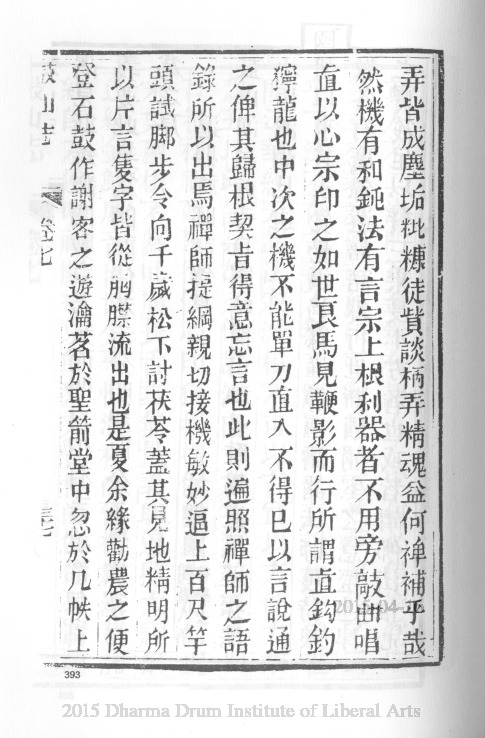 弄皆成塵垢粃糠徒貲談柄弄精魂益何裨補乎哉
然機有和鈍法有言宗上根利器者不用旁敲曲唱
直以心宗印之如世良馬見鞭影而行所謂直鈎釣
獰龍也中次之機不能單刀直入不得巳以言說通
之俾其歸根契旨得意忘言也此則遍照禪師之語
錄所以出焉禪師提綱親切接機敏妙逼上百尺竿
頭試脚步令向千歲松下討茯苓蓋其見地精明所
以片言隻字皆從胸臆流出也是夏余緣勸農之便
登石鼓作謝客之遊瀹茗於聖箭堂中忽於几帙上
鼓山志 卷七
393
2015 Dharma Drum Institute of Liberal Arts